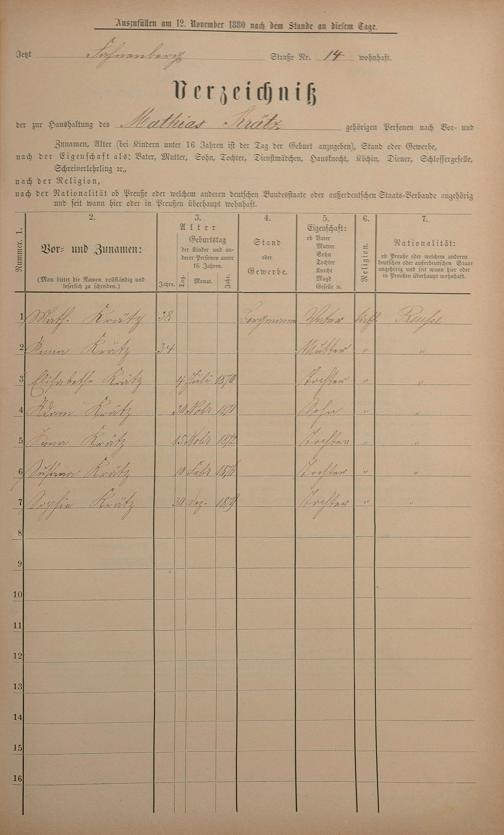 Auszufüllen am 12. November 1880 nach dem Stande an diesem Tage.
Jetzt Straße Nr. 14 wohnhaft.
Verzeichniß
der zur Haushaltung des Mathias Krätz gehörigen Personen nach Vor- und
Zunamen, Alter (bei Kindern unter 16 Jahren ist der Tag der Geburt anzugeben), Stand oder Gewerbe,
nach der Eigenschaft als: Vater, Mutter, Sohn, Tochter, Dienstmädchen, Hausknecht, Köchin, Diener, Schlossergeselle,
Schreiverlehrling ꝛc.,
nach der Religion,
nach der Nationalität ob Preuße oder welchem anderen deutschen Bundesstaate oder außerdeutschen Staats-Verbande angehörig
und seit wann hier oder in Preußen überhaupt wohnhaft.
Nummer. 1. 2. 3. 4. 5. 6. 7.
Vor- und Zunamen:
(Man bittet die Namen vollständig und leserlich zu schreiben.)
Alter
Jahre.
Geburtstag
der Kinder und anderer Personen unter 16 Jahren.
Tag. Monat. Jahr.
Stand
oder
Gewerbe.
Eigenschaft:
ob Vater
Mutter
Sohn
Tochter
Knecht
Magd
Geselle ꝛc.
Religion.
Nationalität:
ob Preuße oder welchem anderen deutschen oder außerdeutschen Staat angehörig und seit wann hier oder in Preußen überhaupt wohnhaft.
1 Math. Krätz 38 Bergmann Vater kath.
2 Anna Krätz 34 Mutter " "
3 Elisabetha Krätz 4 Juli Tochter " "
4 Adam Krätz 30 Sohn " "
5 Anna Krätz 15 Tochter " "
6 Susana Krätz 10 Febr. Tochter " "
7 Sophia Krätz 30 Dez. Tochter " "
8
9
10
11
12
13
14
15
16